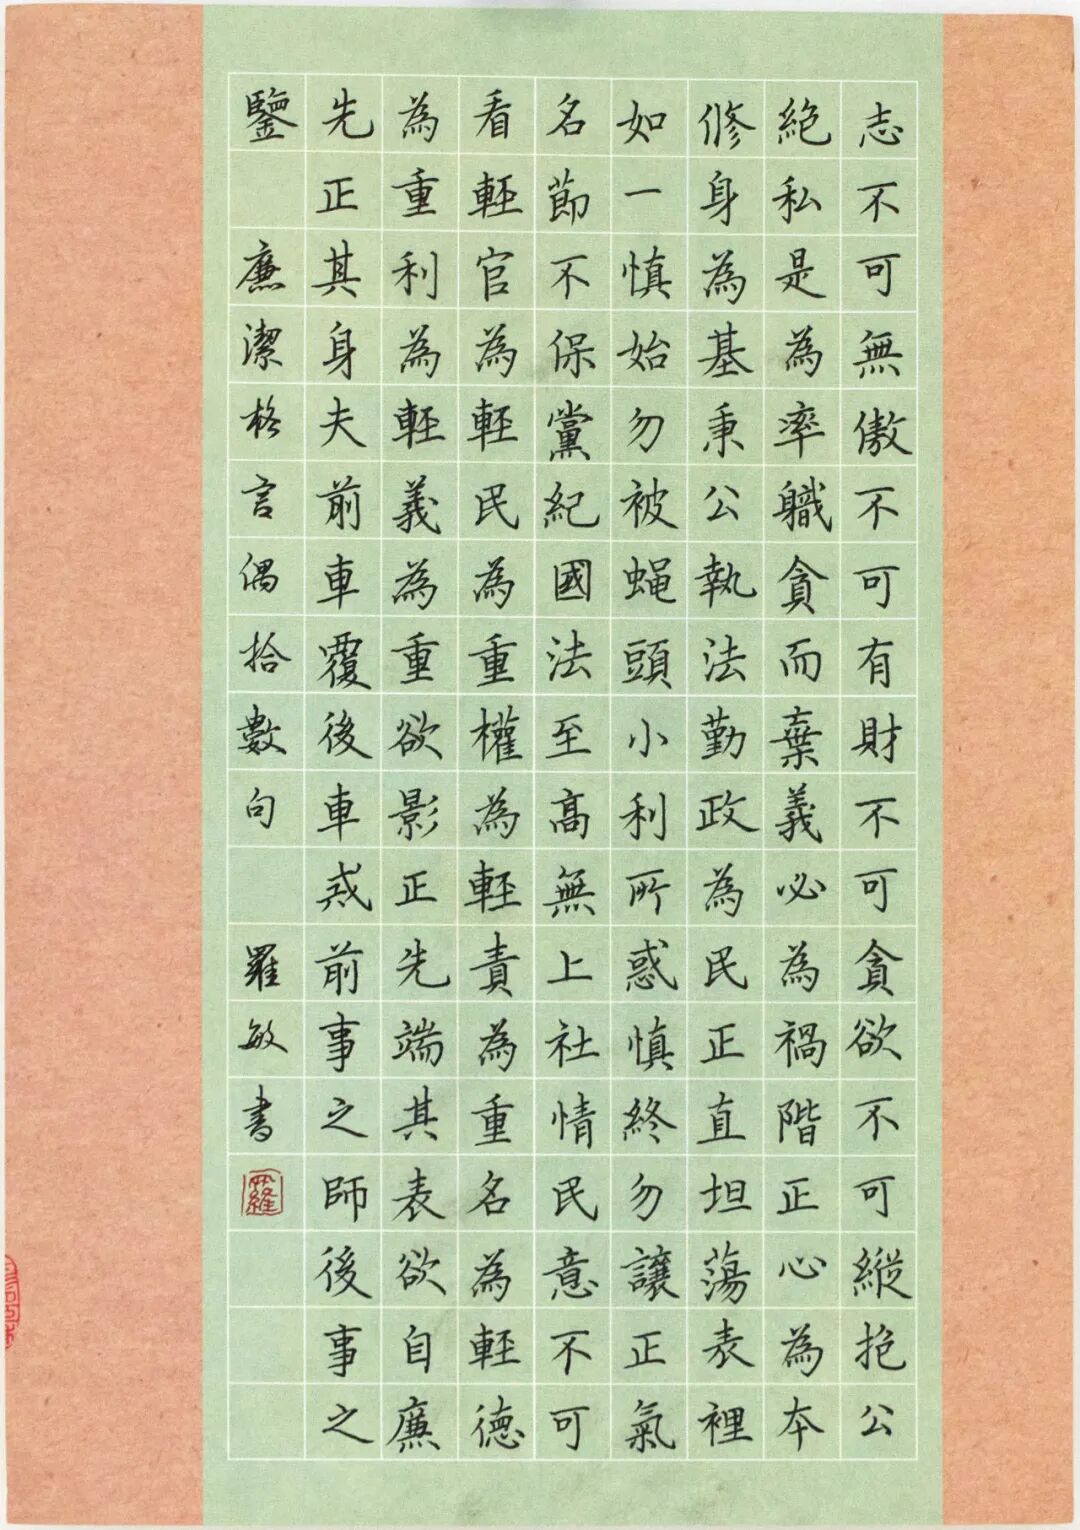 志不可無傲不可有財不可貪欲不可縱抱公
絕私是為率職貪而棄義必為禍階正心為本
修身為基秉公執法勤政為民正直坦蕩表裡
如一慎始勿被蝇頭小利所惑慎終勿讓正氣
名節不保黨紀國法至高無上社情民意不可
看輕官為輕民為重權為輕責為重名為輕德
為重利為輕義為重欲影正先端其表欲自廉
先正其身夫前車覆後車戒前事之師後事之
鑒 廉潔格言偶拾數句 羅敏書
羅